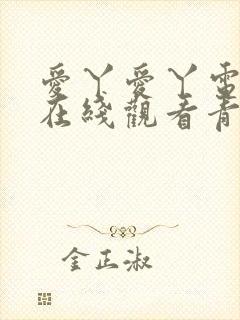 愛丫愛丫電
在綫觀看青
金正淑